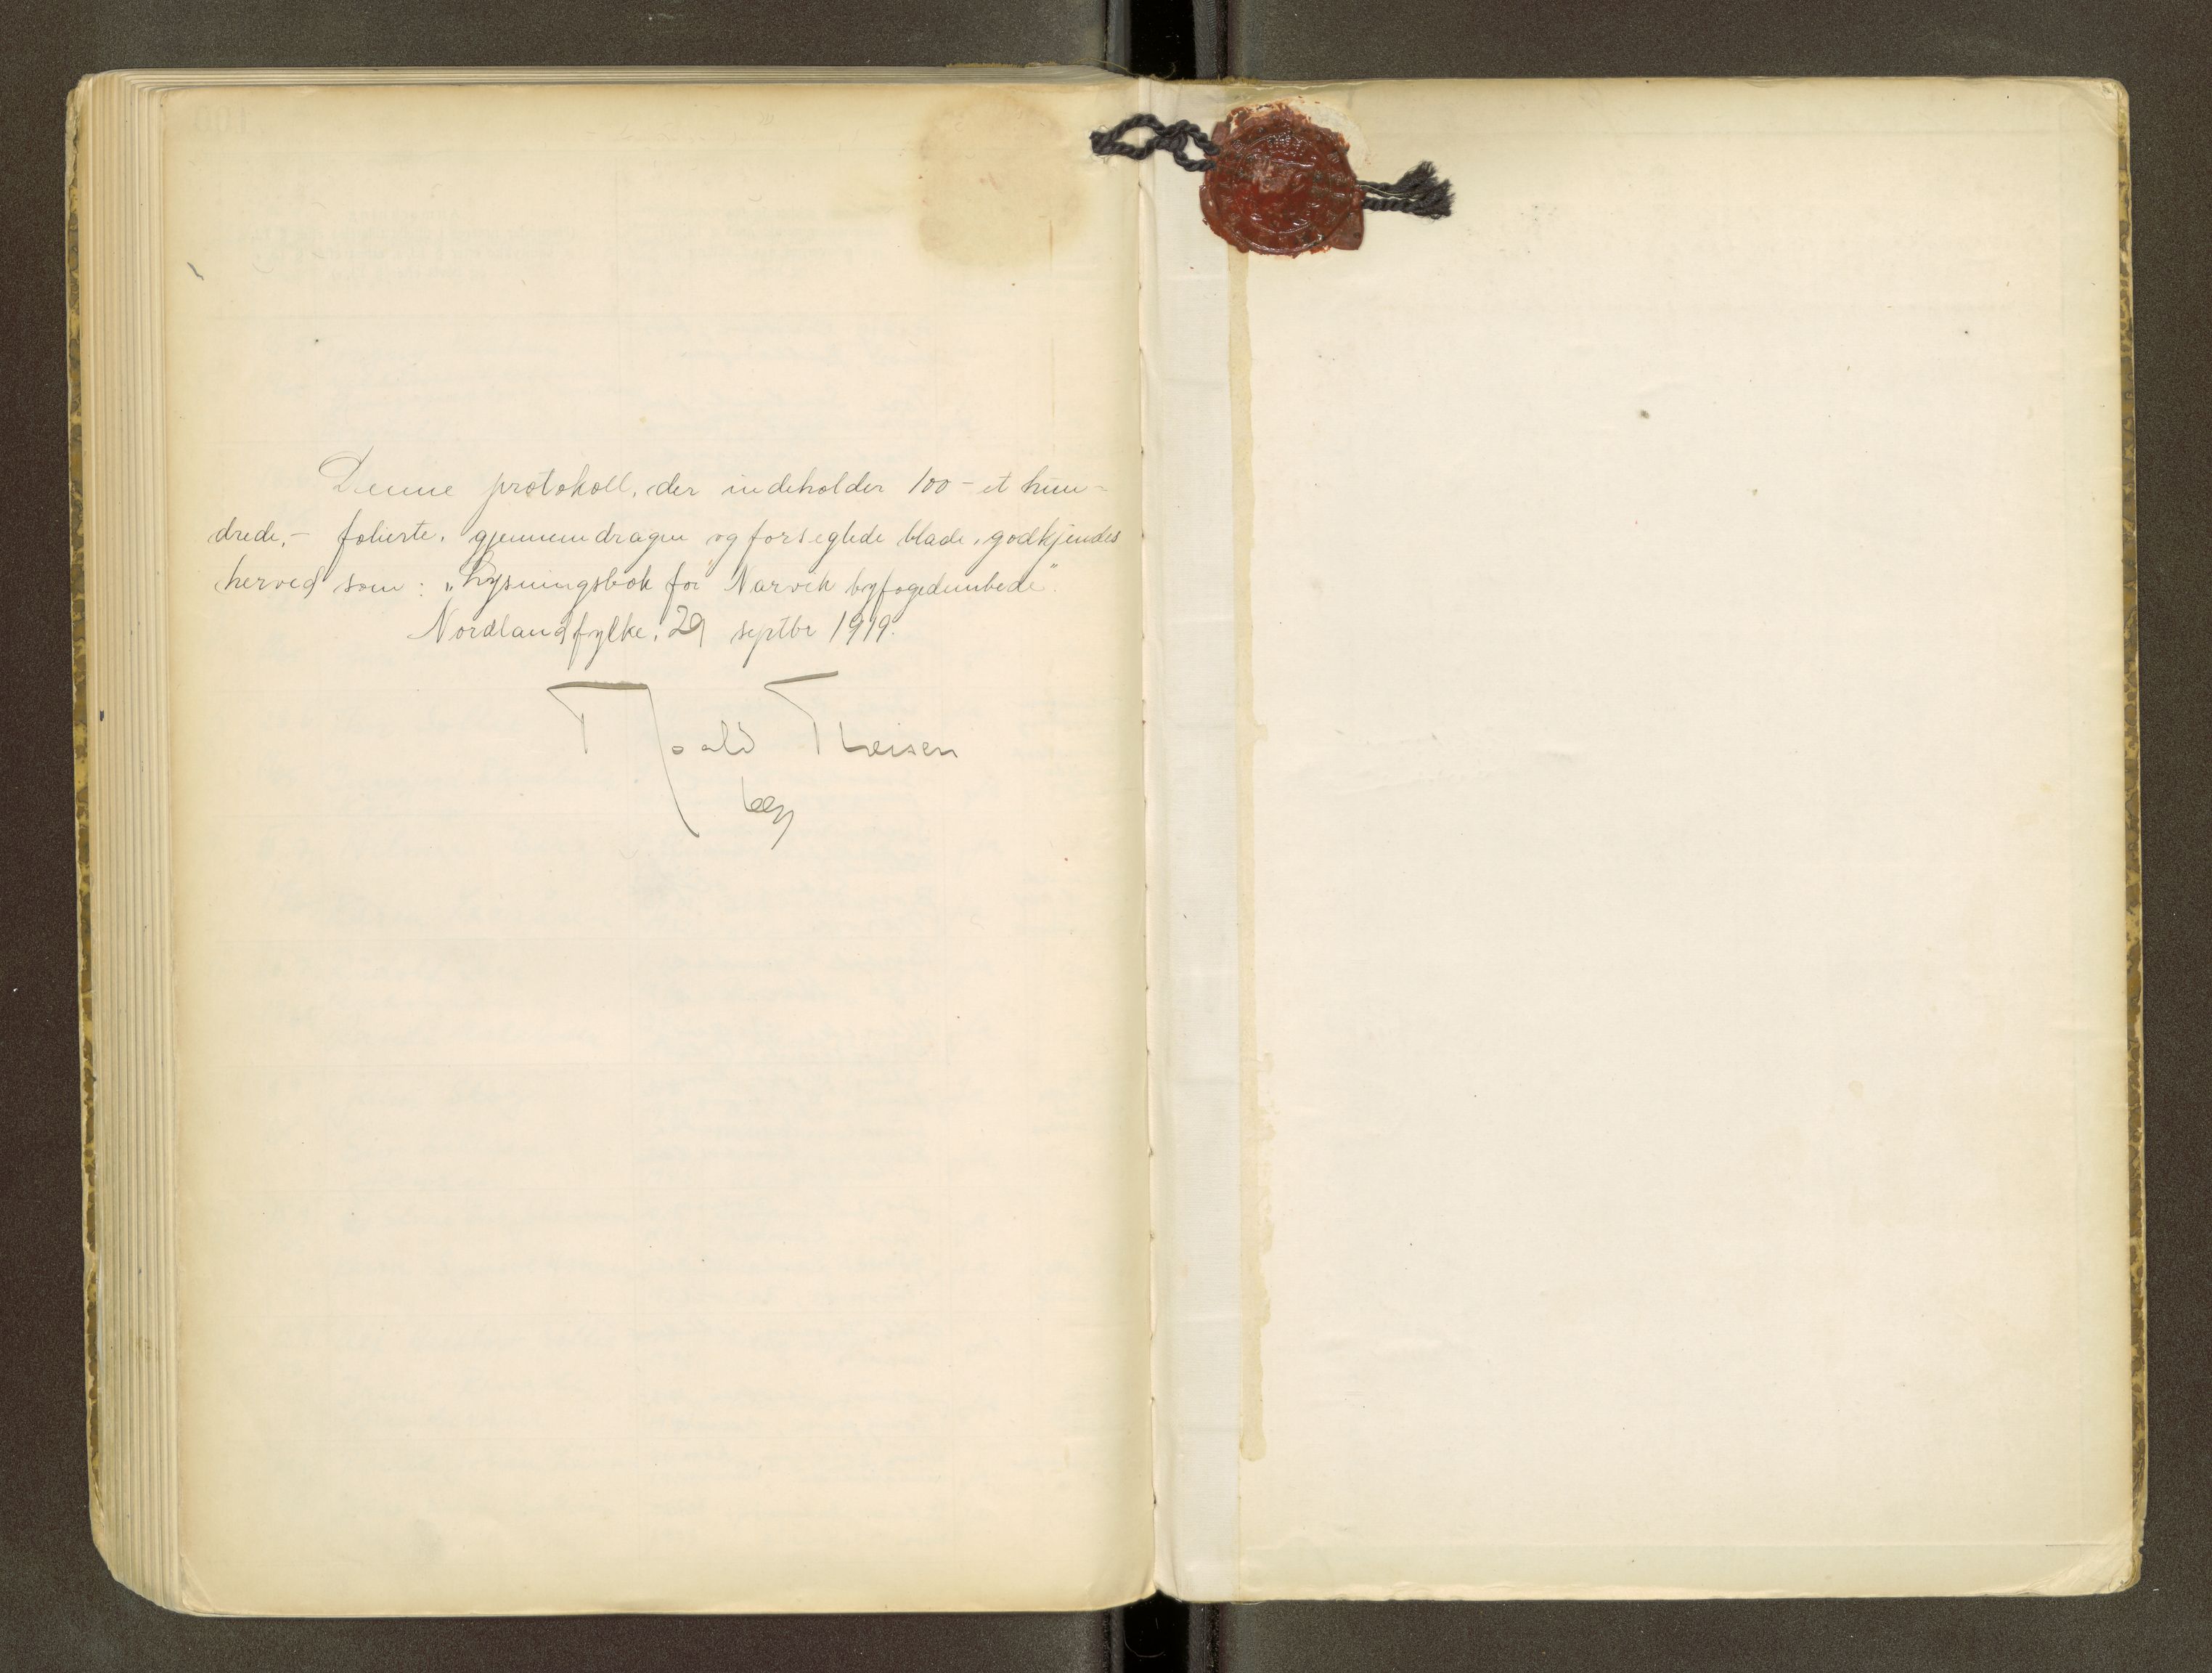 Denne protokoll, der indeholder 100 - et hun-
drede, - folierte, gjennemdragne og forseglede blade, godkjendes
herved som: „Lysningsbok for Narvik byfogedembede”.
Nordland fylke, 29 septbr 1919.
Theisen